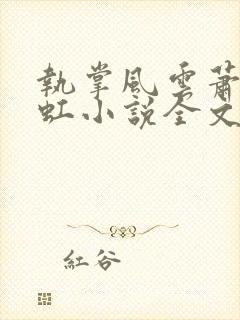 執掌風雲蕭
虹小說全文
紅谷